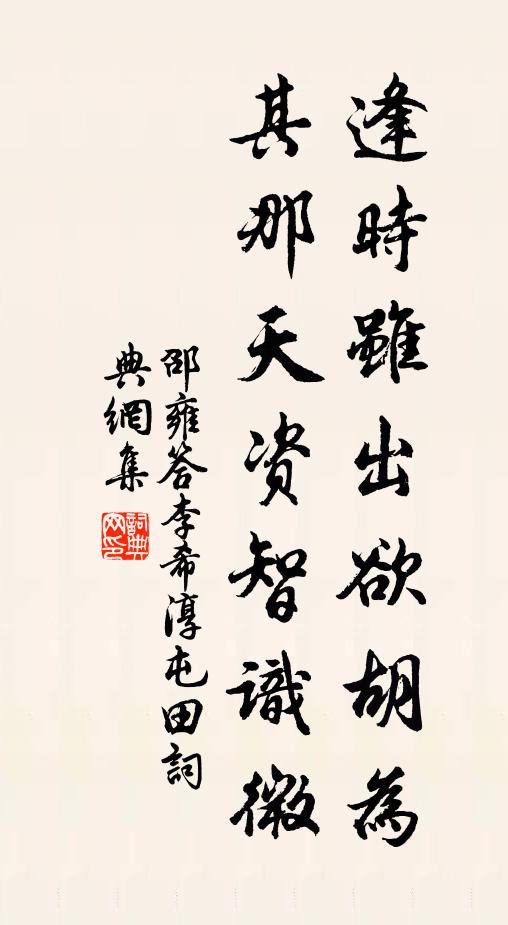 逢時雖出欲胡為
其那天資智識微
邵雍答李希淳屯田詞
典網集
詞典
網印